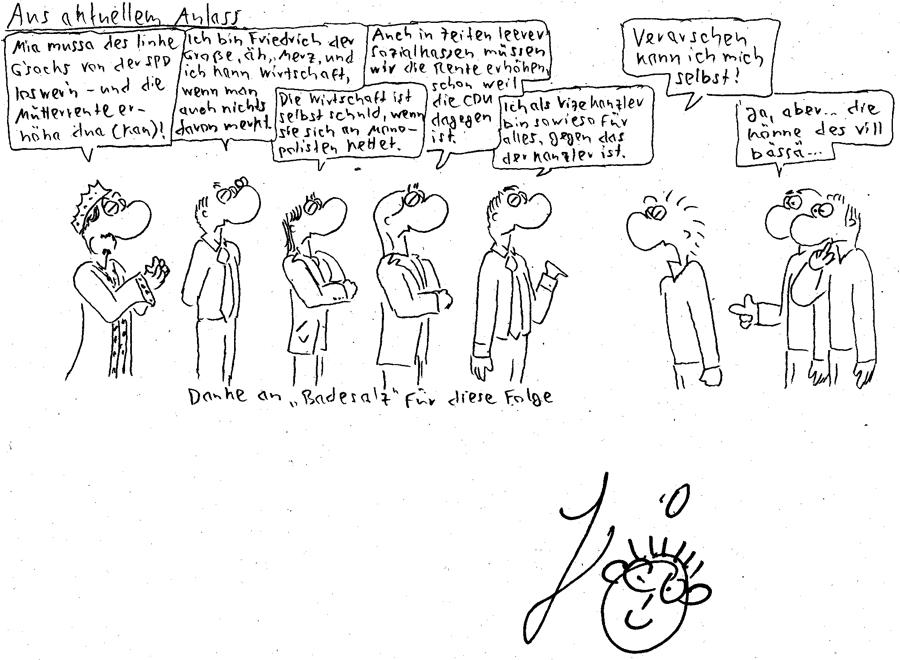 Aus aktuellem Anlass
Mia mussa des linke
G'socks von der SPD
loswern - und die
Mütterrente er-
höha dua (kan)!
Ich bin Friedrich der
Große, äh, Merz, und
ich kann Wirtschaft,
wenn man
auch nichts
davon merkt.
Die Wirtschaft ist
selbst schuld, wenn
sie sich an Mono-
polisten kettet.
Auch in Zeiten leerer
Sozialkassen müssen
wir die Rente erhöhen,
schon weil
die CDU
dagegen
ist.
Ich als Vizekanzler
bin sowieso für
alles, gegen das
der Kanzler ist.
Verarschen
kann ich mich
selbst!
Ja, aber... die
könne des vill
bässä...
Danke an „Badesalz" für diese Folge